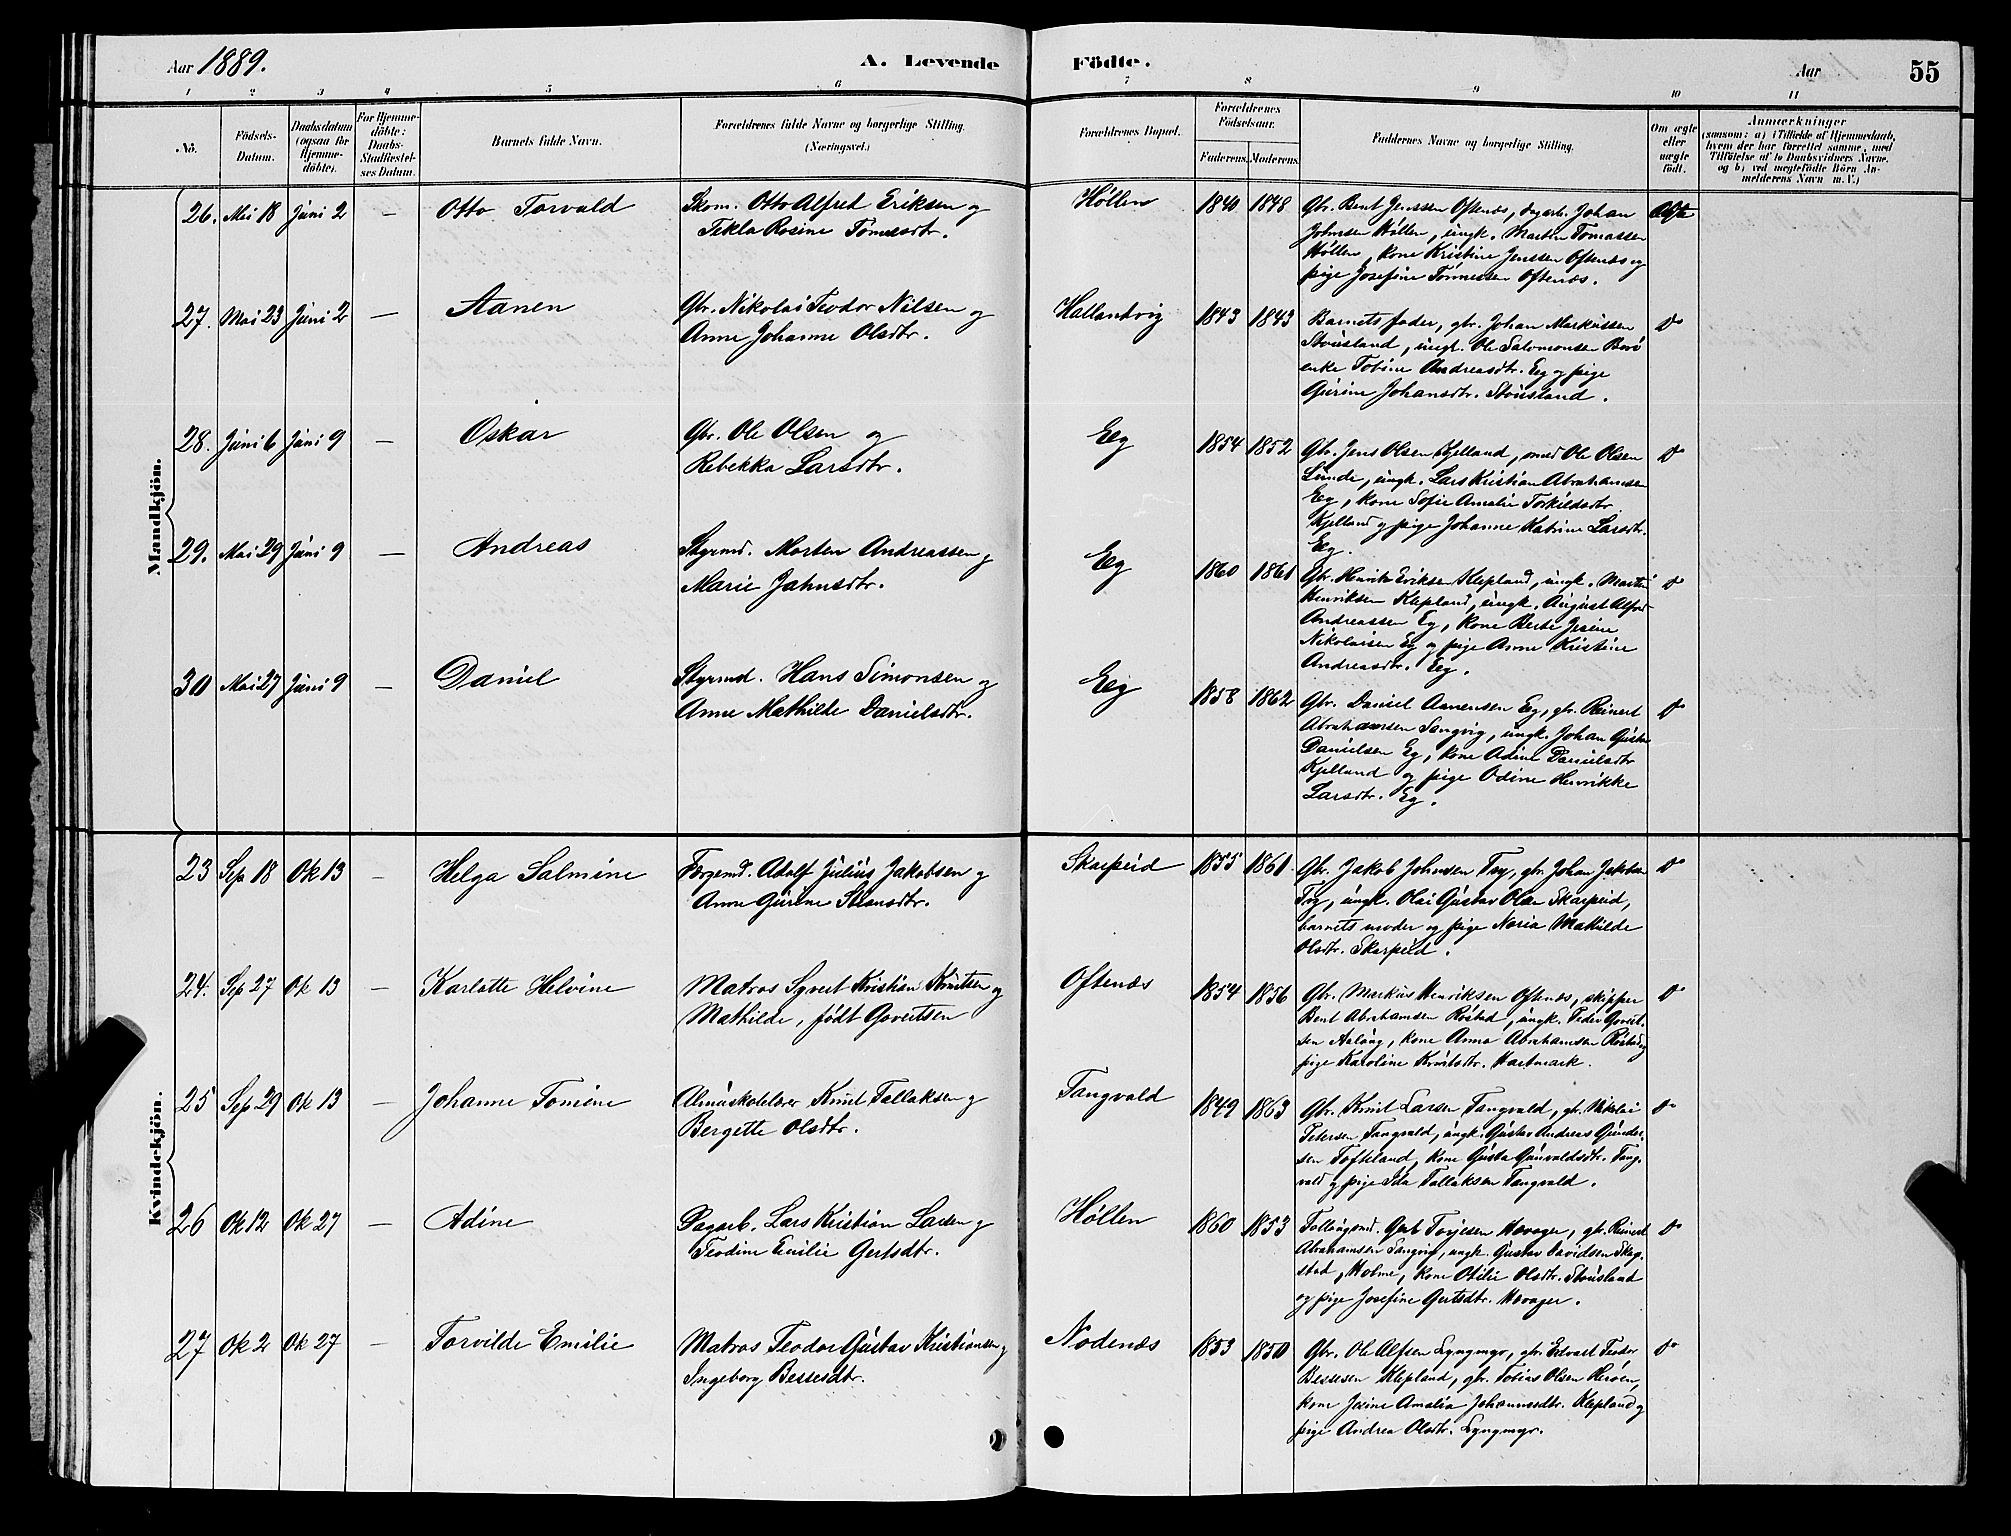 Aar 1889.
A. Levende
Födte.
Aar
55
1 2 3 4 5 6 7 8 9 10 11
No.
Födsels-
Datum.
Daabsdatum
(ogsaa for
Hjemme-
döbte).
For Hjemme-
döbte:
Daabs-
Stadfæstel-
ses Datum.
Barnets fulde Navn.
Forældrenes fulde Navne og borgerlige Stilling.
(Næringsvei.)
Forældrenes Bopæl.
Forældrenes
Födselsaar.
Faderens. Moderens.
Faddernes Navne og borgerlige Stilling.
Om ægte
eller
uægte
født.
Anmærkninger
(saasom: a) i Tilfælde af Hjemmedaab,
hvem der har forrettet samme, med
Tilföielse af to Daabsvidners Navne,
og b) ved uægtefödte Börn An-
melderens Navn m. V.)
Mandkjön.
26. Mai 18 Juni 2 — Otto Torvald
Skom. Otto Alfred Eriksen og
Tekla Rosine Tømesdtr.
Høllen 1840 1848
Gbr. Bent Jenssen Oftenæs, dagarb. Johan
Johnsen Høllen, ungk. Martin Tomassen
Høllen, kone Kristine Jenssen Oftenæs og
pige Josefine Tønnessen Oftenæs.
Ægte
27. Mai 23 Juni 2 — Aanen
Gbr. Nikolai Teodor Nilsen og
Anne Johanne Olsdtr.
Hallandvig 1843 1843
Barnets fader, gbr. Johan Markussen
Stousland, ungk. Ole Salomonsen Borø
enke Tobine Andreasdtr. Eeg og pige
Gurine Johansdtr. Stousland.
Do
28. Juni 6 Juni 9 — Oskar
Gbr. Ole Olsen og
Rebekka Larsdtr.
Eeg 1854 1852
Gbr. Jens Olsen Kjelland, smed Ole Olsen
Lunde, ungk. Lars Kristian Abrahamsen
Eeg, kone Sofie Amalie Torkildsdtr.
Kjelland og pige Johanne Katrine Larsdtr.
Eeg.
Do
29. Mai 29 Juni 9 — Andreas
Styrmd. Morten Andreassen og
Marie Jahnsdtr.
Eeg 1860 1861
Gbr. Henrik Eriksen Klepland, ungk. Martin
Henriksen Klepland, ungk. August Alfred
Andreassen Eg, kone Berte Jesine
Nikolaisen Eg og pige Anne Kristine
Andreasdtr. Eeg.
Do
30 Mai 27 Juni 9 — Daniel
Styrmd. Hans Simonsen og
Anne Mathilde Danielsdtr.
Eeg 1858 1862
Gbr. Daniel Aanensen Eeg, gbr. Reinert
Abrahamsen Sangvig, ungk. Johan Gustav
Danielsen Eg, kone Adine Danielsdtr
Kjelland og pige Odine Henrikke
Larsdtr. Eg.
Do
Kvindekjön.
23 Sep 18 Ok 13 — Helga Salmine
Færgemd. Adolf Julius Jakobsen og
Anne Gurine Stiansdtr.
Skarpeid 1855 1861
Gbr. Jakob Johnsen Try, gbr. Johan Jakobsen
Try, ungk. Olai Gustav Olsen Skarpeid,
barnets moder og pige Naria Mathilde
Olsdtr. Skarpeid.
Do
24. Sep 27 Ok 13 — Karlotte Helvine
Matros Syvert Kristian Knutsen og
Mathilde, født Govertsen
Oftenæs 1854 1856
Gbr. Markus Henriksen Oftenæs, skipper
Bent Abrahamsen Røstad, ungk. Peder Govert-
sen Aaløug, kone Anna Abrahamsen Røstad og
pige Karoline Knutsdtr. Hartmark.
Do
25 Sep 29 Ok 13 — Johanne Tomine
Almuskolelærer Knut Tallaksen og
Bergette Olsdtr.
Tangvald 1849 1863
Gbr. Knut Larsen Tangvald, gbr. Nikolai
Petersen Tangvald, ungk. Gustav Andreas Gunder-
sen Tofteland, kone Gusta Gunvaldsdtr. Tang-
vald og pige Ida Tallaksen Tangvald.
Do
26 Ok 12 Ok 27 — Adine
Dagarb. Lars Kristian Larsen og
Teodine Emilie Gertsdtr.
Høllen 1860 1853
Gert Torjesen Hevager, gbr. Reinert
Abrahamsen Sangvig, ungk. Gustav Davidsen Skog-
stad, Holme, kone Otilie Olsdtr. Stousland
og pige Josefine Gertsdtr. Hevager.
Do
27 Ok 2 Ok 27 — Torvilde Emilie
Matros Teodor Gustav Kristiansen og
Ingeborg Bessesdtr.
Nodenæs 1853 1850
Gbr. Ole Alfsen Lyngmyr, gbr. Edvart Teodor
Bessesen Klepland, gbr. Tobias Olsen Herøen,
kone Jesine Amalia Johannesdtr. Klepland og
pige Andrea Olsdtr. Lyngmyr.
Do